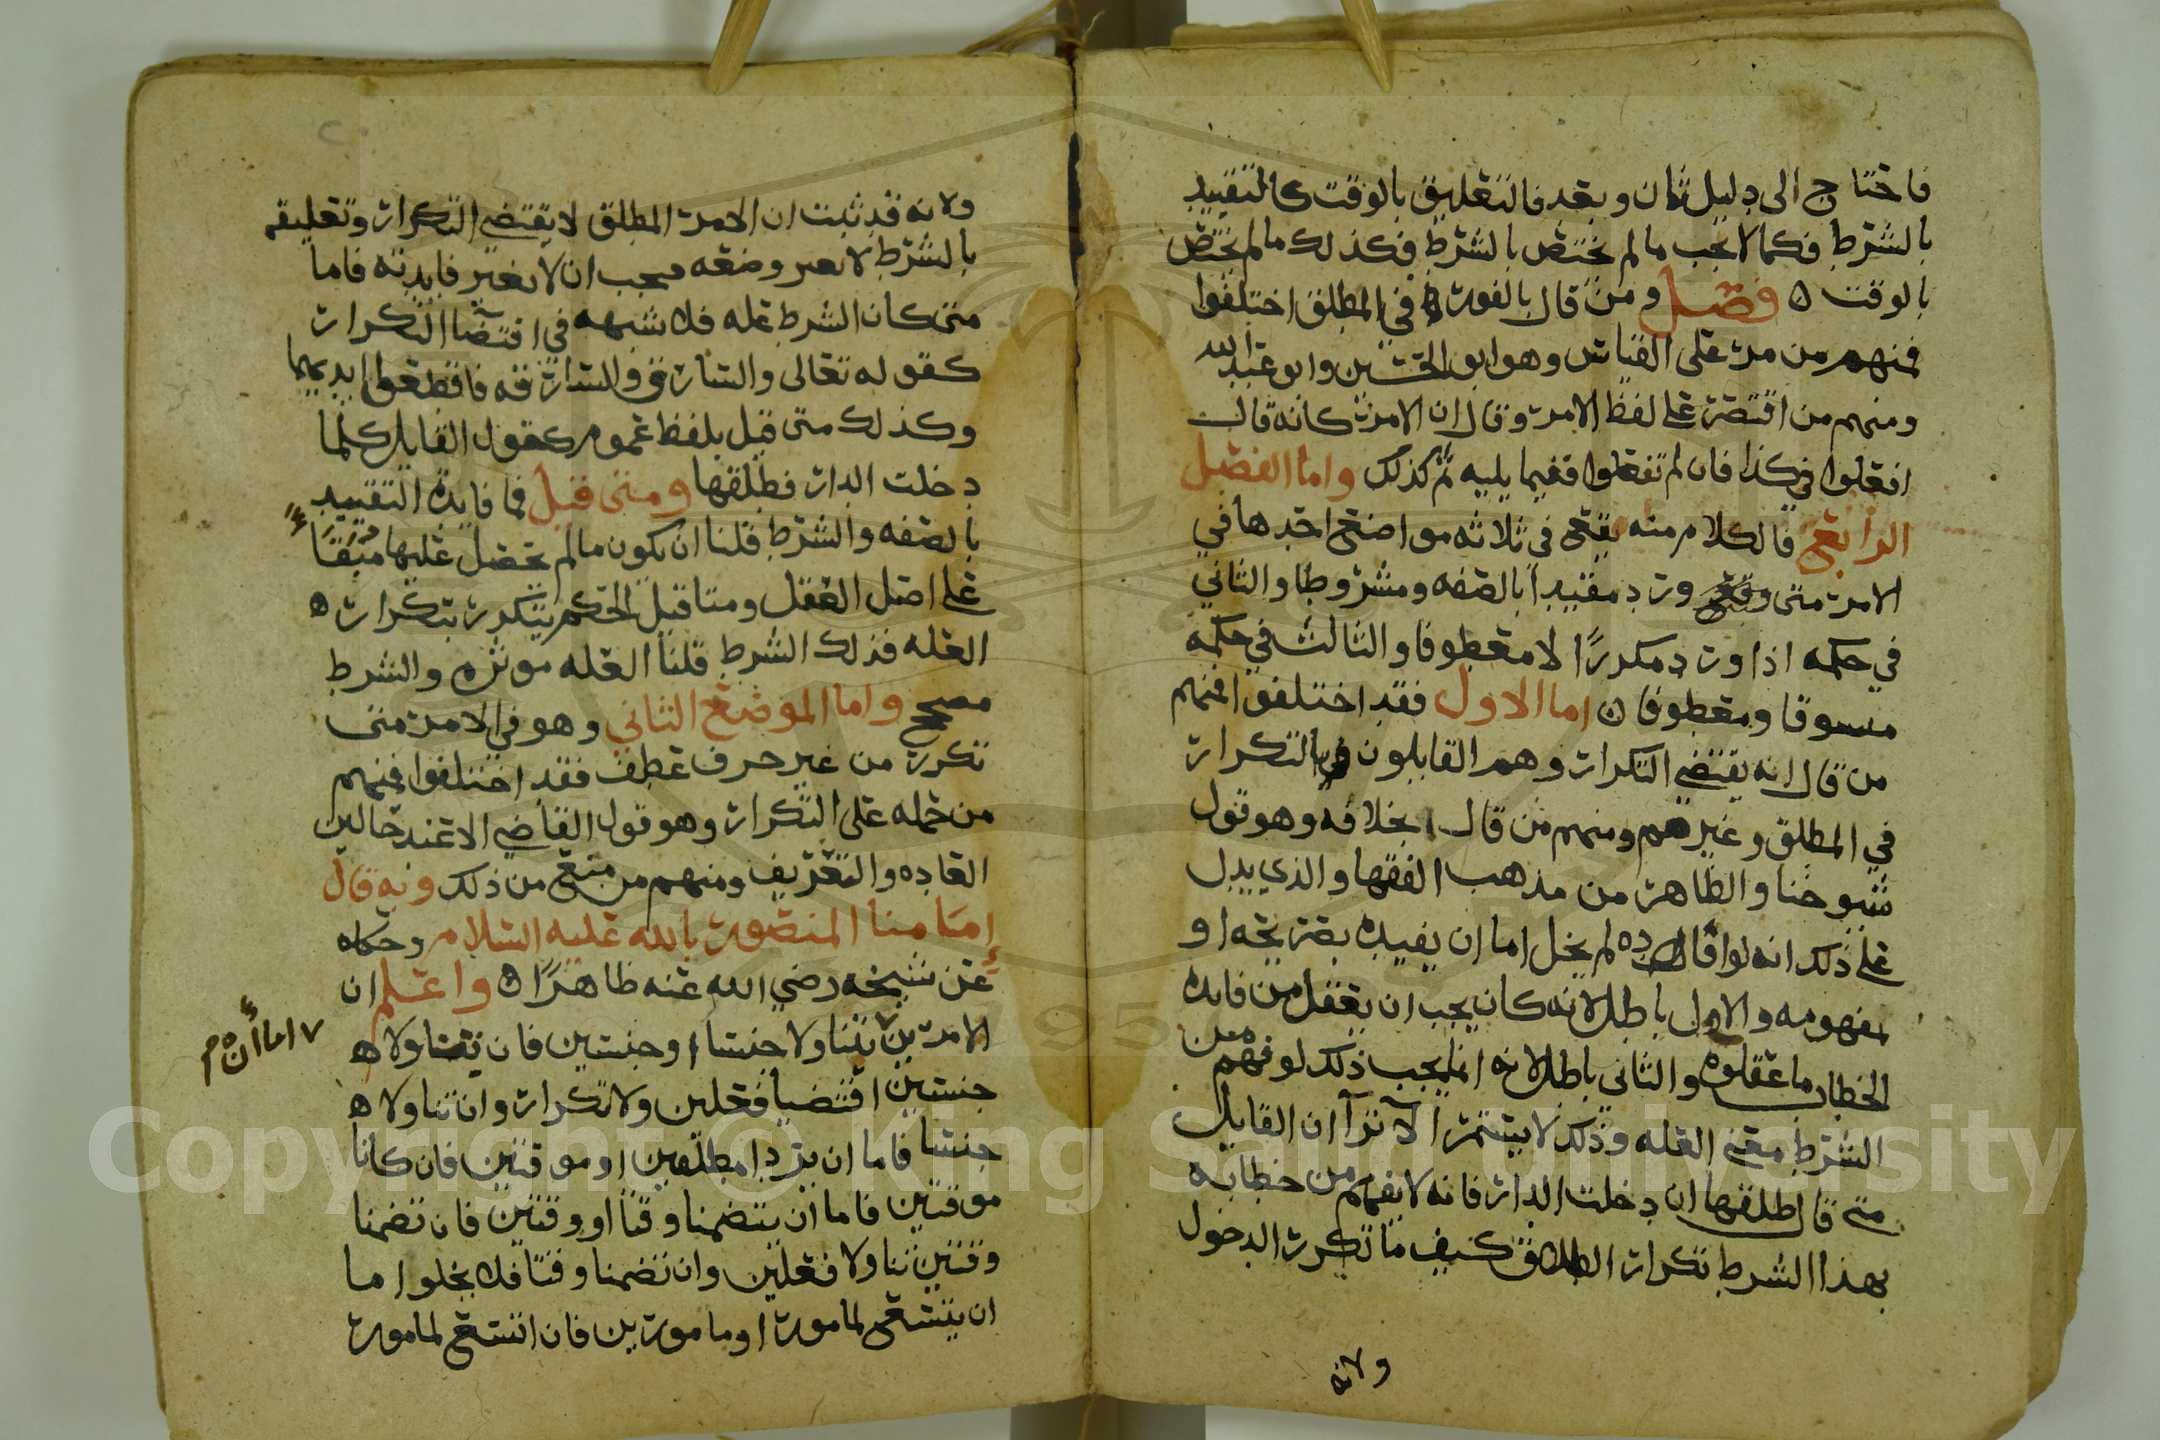 فاحتاج الى دليل ثان وبعد فالتعليق بالوقت كالتقييد
بالشرط فكما لا يجب ما لم يختص بالشرط فكذلك ما لم يختص
بالوقت ه فصل ومن قال بالفور في المطلق اختلفوا
فمنهم من مر على القياس وهو ابو الحسين وابو عبدالله
ومنهم من اقتصر على لفظ الامر وقال ان الامر كانه قال
افعلوا في كذا فان لم تفعلوا ففيما يليه ثم كذلك واما الفصل
الرابع فالكلام منه يقع في ثلاثه مواضع احدها في
الامر متى وقع ورد مقيدا بالصفه ومشروطا والثاني
في حكمه اذا ورد مكررًا لا معطوفا والثالث في حكمه
مسوقا ومعطوفا ن اما الاول فقد اختلفوا فمنهم
من قال انه يقتضي التكرار وهم القايلون بالتكرار
في المطلق وغيرهم ومنهم من قال بخلافه وهو قول
شيوخنا والظاهر من مذهب الفقها والذي يدل
على ذلك انه لو افاده لم يخل اما ان يفيده بصريحه او
بمفهومه والاول باطل لانه كان يجب ان يعقل من فايده
الخطاب ما عقلوه والثاني باطل لانه انما يجب ذلك لو فهم من
الشرط معنى العله وذلك لا يستمر الا ترآ ان القايل
متى قال طلقها ان دخلت الدار فانه لا يفهم من خطابه
بهذا الشرط تكرار الطلاق كيف ما تكرر الدخول
ولانه
ولانه قد ثبت ان الامر المطلق لا يقتضي التكرار وتعليقه
بالشرط لا يغير وضعه فيجب ان لا يغير فايدته فاما
متى كان الشرط عله فلا شبهه في اقتضآ التكرار
كقوله تعالى والسارق والسارقه فاقطعوا ايديهما
وكذلك متى قيل بلفظ عموم كقول القايل كلما
دخلت الدار فطلقها ومتى قيل فما فايدة التقييد
بالصفه والشرط قلنا ان يكون ما لم تحصل عليها مبقًا
على اصل العقل ومتا قيل الحكم يتكرر بتكرار ه
العله فذلك الشرط قلنا العله موثره والشرط
مصحح واما الموضع الثاني وهو في الامر متى
تكرر من غير حرف عطف فقد اختلفوا فمنهم
من حمله على التكرار وهو قول القاضي الا عند حالين
العاده والتعريف ومنهم من منع من ذلك وبه قال
إمامنا المنصور بالله عليه السلام وحكاه
عن شيخه رضي الله عنه ظاهرًا ه واعلم ان
الامرين تناولا جنسا او جنسين فان تناولا ه
جنسين اقتضيا فعلين ولا تكرار وان تناولا ه
جنسا فاما ان يردا مطلقين او موقتين فان كانا
موقتين فاما ان يتضمنا وقتا او وقتين فان تضمنا
وقتين تناولا فعلين وان تضمنا وقتا فلا يخلوا ما
ان يتسع لمامور او مامورين فان اتسع لمامور
اما ان م
Copyright © King Saud University
195